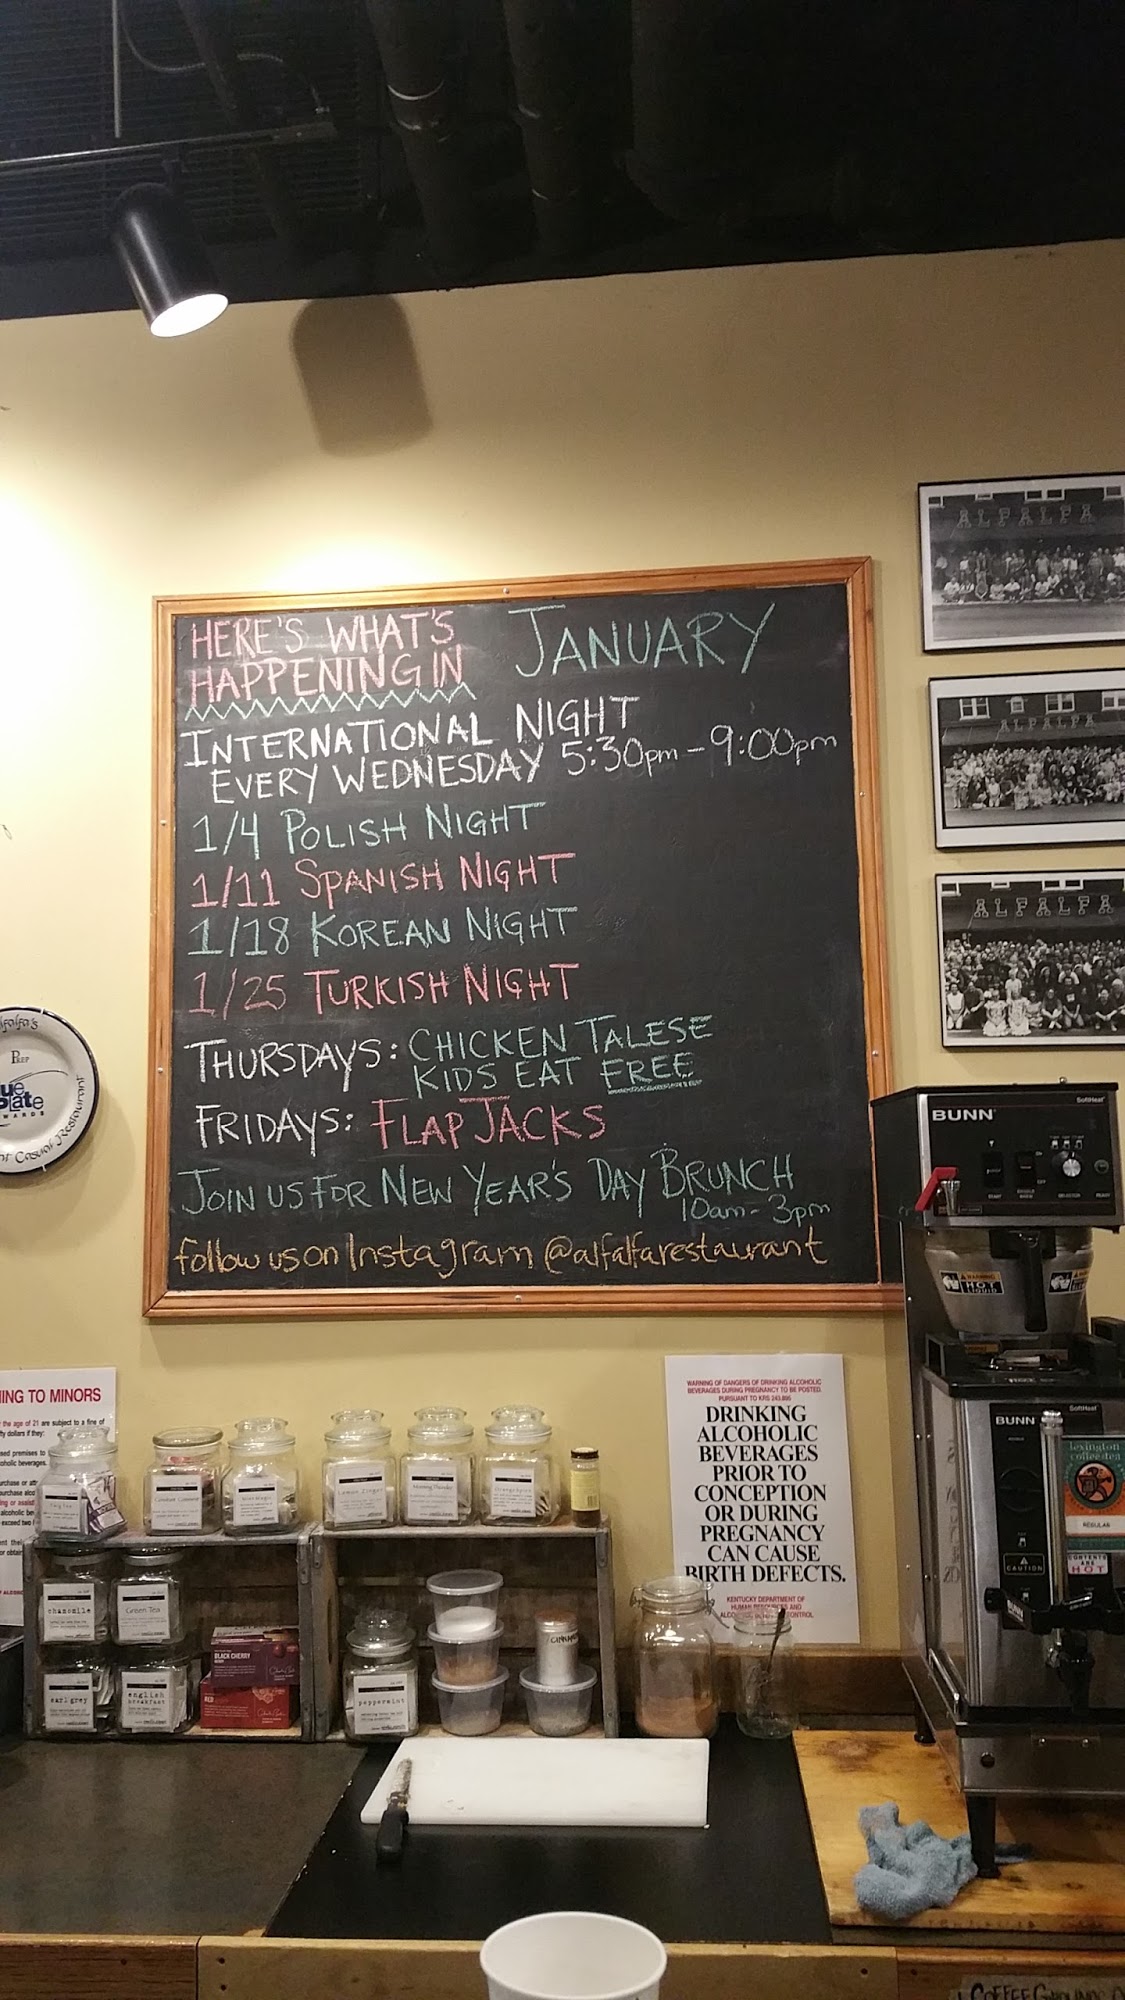 HERE'S WHAT'S
HAPPENING IN
JANUARY
INTERNATIONAL NIGHT
EVERY WEDNESDAY 5:30pm-9:00pm
1/4 POLISH NIGHT
1/11 SPANISH NIGHT
1/18 KOREAN NIGHT
1/25 TURKISH NIGHT
THURSDAYS: CHICKEN TALESE
KIDS EAT FREE
FRIDAYS: FLAP JACKS
JOIN US FOR NEW YEAR'S DAY BRUNCH
10am-3pm
follow us on Instagram @alfalfarestaurant
ALFALFA
ALFALFA
ALFALFA
PREP
Plate
Casual Restaurant
BUNN
SoftHeat
WARNING
HOT
LIQUID
BUNN
SoftHeat
lexington
coffee&tea
REGULAR
CAUTION
CONTENTS
ARE
HOT
BUNN
TO MINORS
the age of 21 are subject to a fine of
WARNING OF DANGERS OF DRINKING ALCOHOLIC
BEVERAGES DURING PREGNANCY TO BE POSTED.
PURSUANT TO KRS 243.895
DRINKING
ALCOHOLIC
BEVERAGES
PRIOR TO
CONCEPTION
OR DURING
PREGNANCY
CAN CAUSE
BIRTH DEFECTS.
KENTUCKY DEPARTMENT OF
Lemon Zinger
chamomile
Green Tea
earl grey
english
breakfast
BLACK CHERRY
RED
peppermint
COFFEE GROUNDS